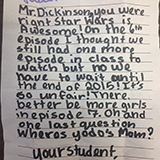 Mr. Dickinson, you were
right Star Wars is
Awesome! On the 6th
Episode I thought we
still had one more
episode in class to
watch but no we
have to wait until
the end of 2015! It's
so unfair! There
better be more girls
in episode 7. Oh and
one last question
wheros yoda's Mom?
your student,